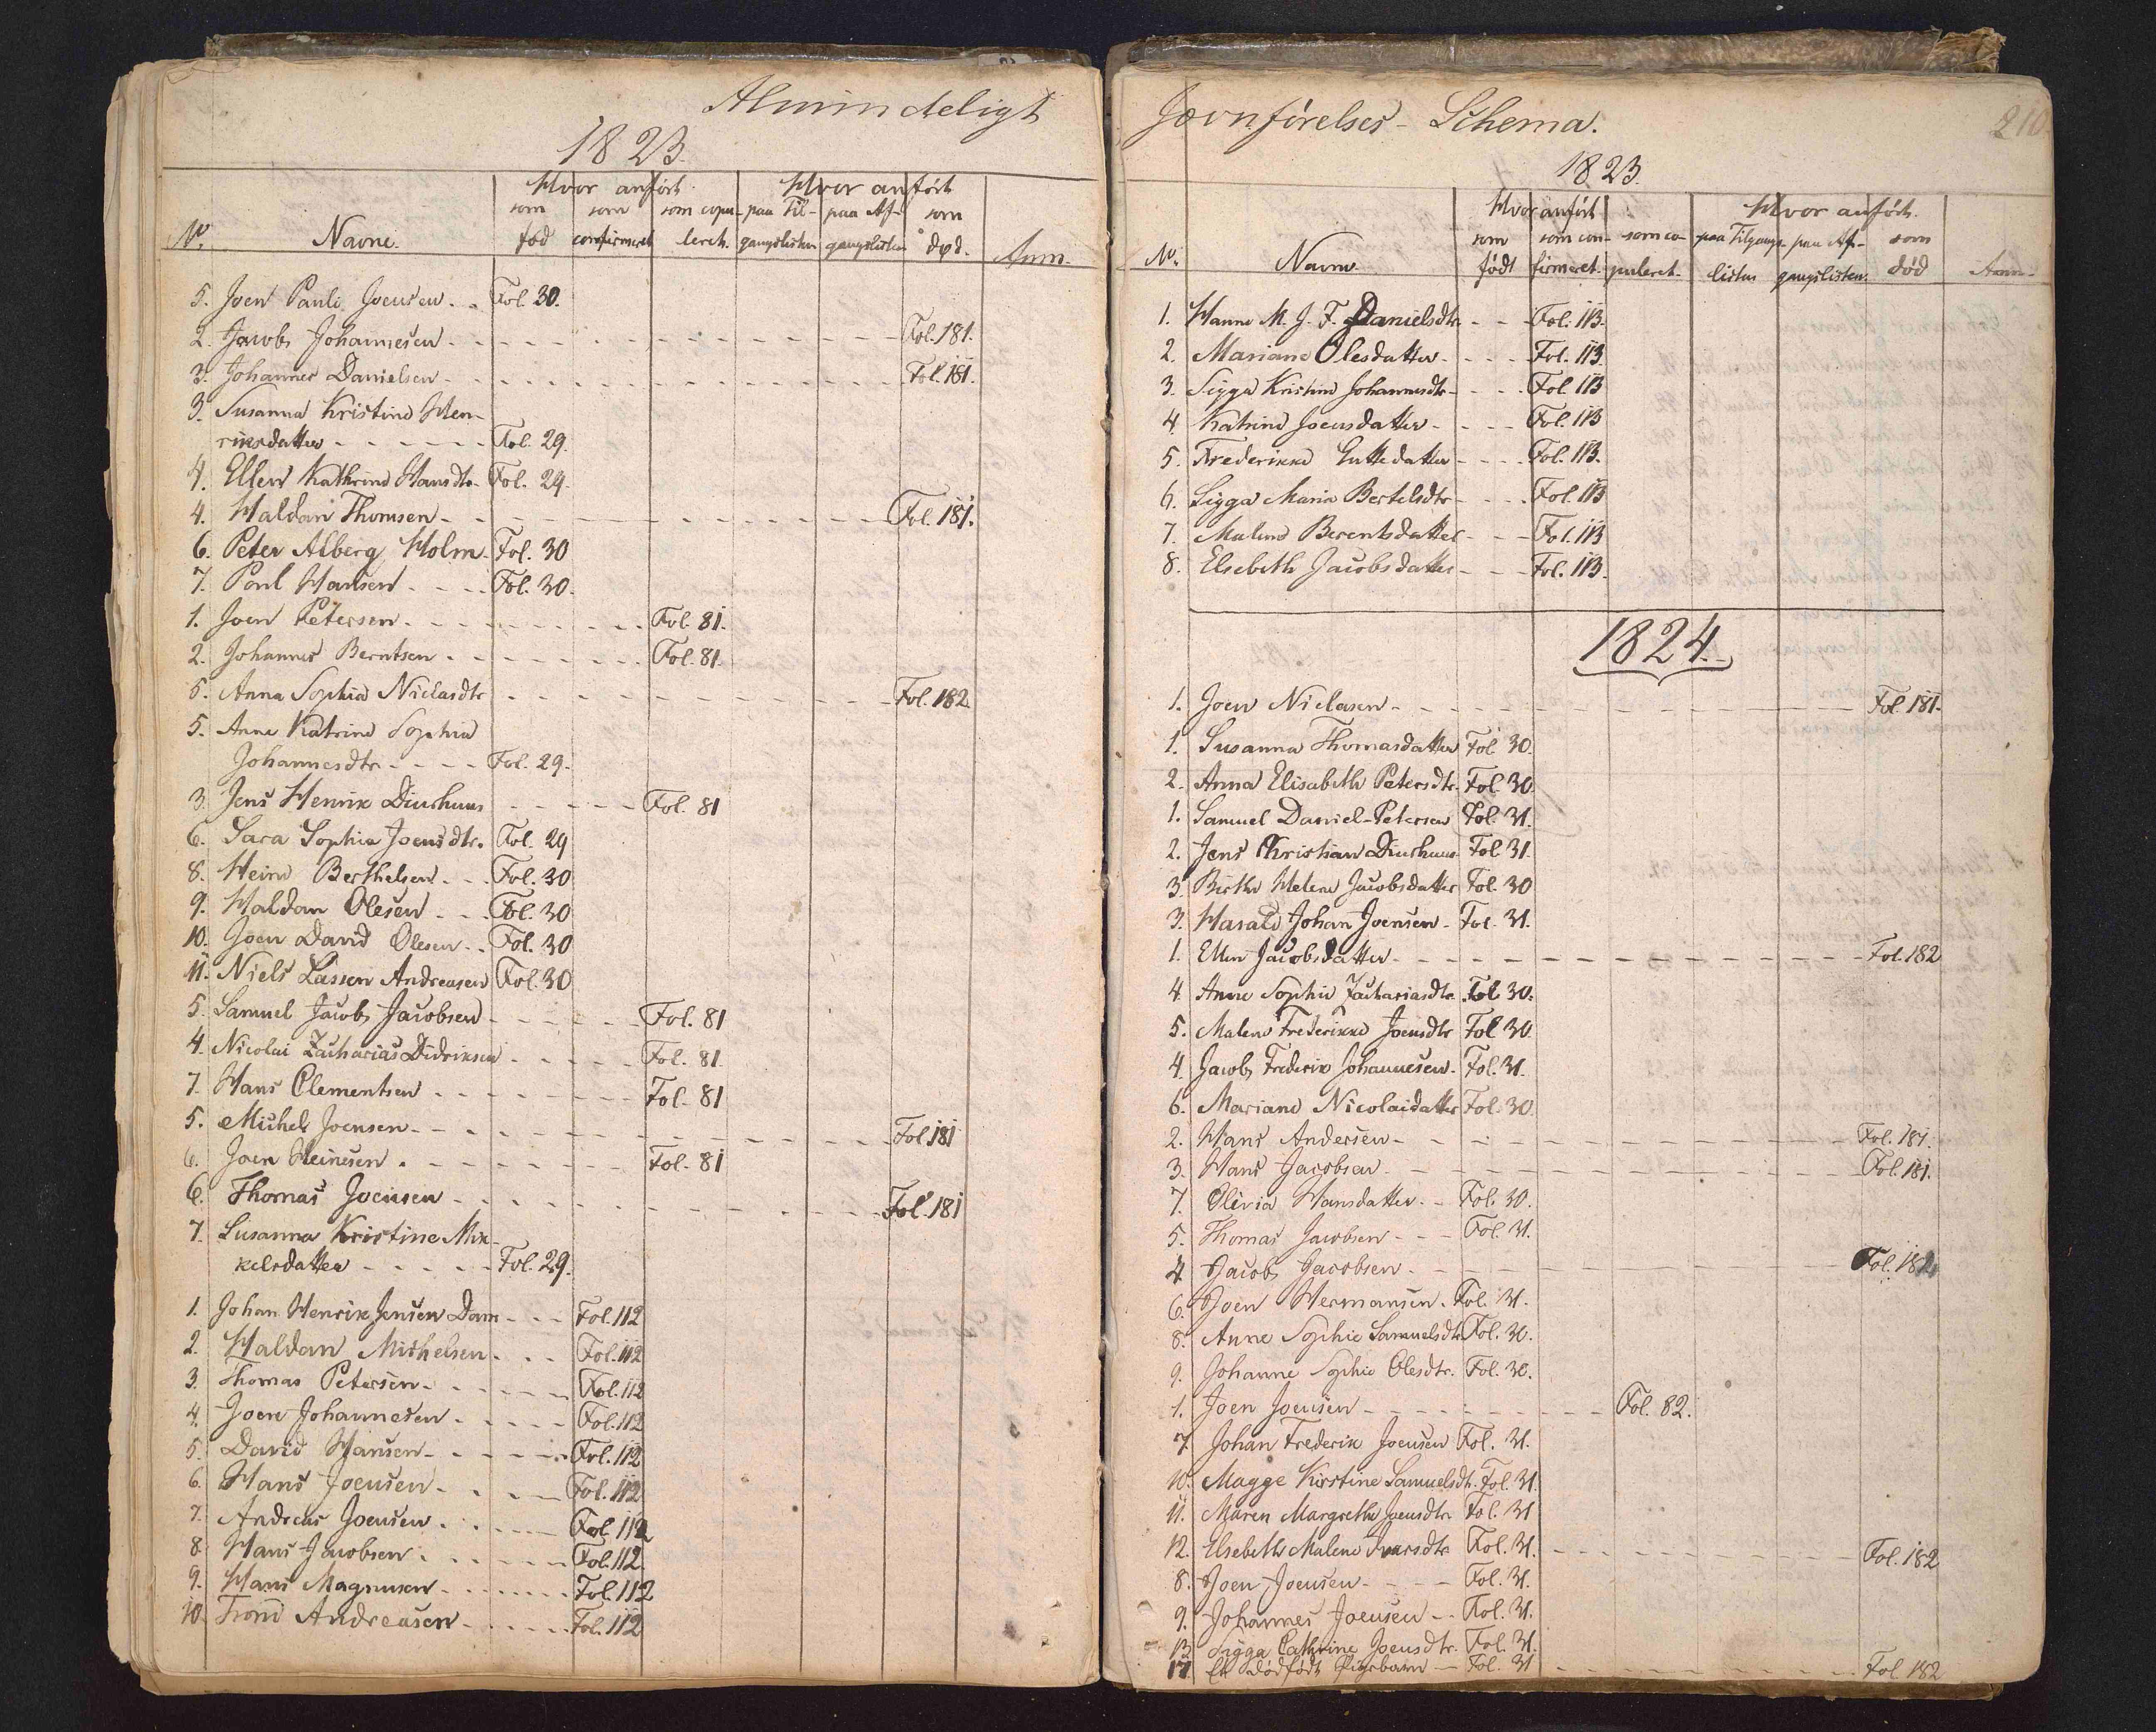 Almindeligt
1823.
Hvor anført Hvor anført
som som som copu- paa Til- paa Af- som
No. Navne. fød confirmeret leret. gangslisten gangslisten død. Anm.
5. Joen Pauli Joensen . . Fol. 30.
2. Jacob Johannesen - - - Fol. 181.
3. Johannes Danielsen - - - Fol. 181.
3. Susanna Kristine Hen-
riksdatter - - - Fol. 29.
4. Ellen Kathrine Hansdtr. Fol. 29.
4. Haldan Thomsen - - - Fol. 181.
6. Peter Alberg Holm. Fol. 30
7. Poul Hansen - - - Fol. 30.
1. Joen Petersen - - - Fol. 81.
2. Johannes Berntsen - - - Fol. 81.
6. Anna Sophia Niclasdtr - - - Fol. 182.
5. Anne Katrine Sophia
Johannesdtr - - - Fol. 29.
3. Jens Henrik Diurhuus - - - Fol. 81
6. Sara Sophia Joensdtr. Fol. 29
8. Heine Berthelsen - - - Fol. 30
9. Haldan Olesen - - - Fol. 30
10. Joen David Olesen - - Fol. 30
11. Niels Lassen Andreasen Fol. 30
5. Samuel Jacob Jacobsen - - - Fol. 81
4. Nicolai Zacharias Didriksen - - - Fol. 81.
7. Hans Clementsen - - - Fol. 81
5. Michel Joensen - - - Fol. 181
6. Joen Heinesen - - - Fol. 81
6. Thomas Joensen - - - Fol. 181
7. Susanna Kristine Mik-
kelsdatter - - - Fol. 29.
1. Johan Henrik Jensen Dam - - - Fol. 112
2. Haldan Michelsen - - - Fol. 112
3. Thomas Petersen - - - Fol. 112
4. Joen Johannesen - - - Fol. 112
5. David Hansen - - - Fol. 112
6. Hans Joensen - - - Fol. 112
7. Andreas Joensen - - - Fol. 112
8. Hans Jacobsen - - - Fol. 112.
9. Hans Magnusen - - - Fol. 112
10. Trond Andreasen - - - Fol. 112
Jævnførelses-Schema. 210.
1823.
Hvor anført Hvor anført.
som som con- som co- paa Tilgangs- paa Af- som
No. Navne. født firmeret. puleret. listen gangslisten. død Anm.
1. Hanne M. J. F. Danielsdtr. - - Fol. 113.
2. Mariane Olesdatter - - - Fol. 113.
3. Sigga Kristine Johannesdtr - - - Fol. 113
4. Katrine Joensdatter - - - Fol. 113
5. Frederikke Guttedatter - - - Fol. 113.
6. Sigga Maria Bertelsdtr - - - Fol. 113
7. Malene Berentsdatter - - - Fol. 113
8. Elsebeth Jacobsdatter - - - Fol. 113.
1824.
1. Joen Niclasen - - - Fol. 181.
1. Susanna Thomasdatter Fol. 30.
2. Anna Elisabeth Petersdtr. Fol. 30.
1. Samuel Daniel Petersen Fol. 31.
2. Jens Christian Diurhuus. Fol. 31.
3. Birthe Helene Jacobsdatter Fol. 30
3. Harald Johan Joensen - Fol. 31.
1. Ellen Jacobsdatter - - - Fol. 182
4. Anne Sophie Zachariasdtr. Fol. 30.
5. Malene Frederikke Joensdtr Fol 30.
4. Jacob Frederik Johannesen. Fol. 31.
6. Mariane Nicolaidatter Fol. 30.
2. Hans Andersen - - - Fol. 181.
3. Hans Jacobsen - - - Fol. 181.
7. Olivia Hansdatter - - Fol. 30.
5. Thomas Jacobsen - - - Fol. 31.
4. Jacob Jacobsen - - - Fol. 181
6. Joen Hermansen. Fol. 31.
8. Anne Sophie Samuelsdtr. Fol. 30.
9. Johanne Sophie Olesdtr. Fol. 30.
1. Joen Joensen - - - Fol. 82.
7. Johan Frederik Joensen Fol. 31.
10. Magge Kirstine Samuelsdtr. Fol. 31.
11. Maren Margrethe Joensdtr Fol. 31
12. Elsebeth Malene Ivarsdtr Fol. 31. - - - Fol. 182
8. Joen Joensen - - - Fol. 31.
9. Johannes Joensen - - Fol. 31.
13. Sigga Cathrine Joensdtr. Fol. 31.
14. Et dødfødt Pigebarn - Fol. 31 - - - Fol. 182